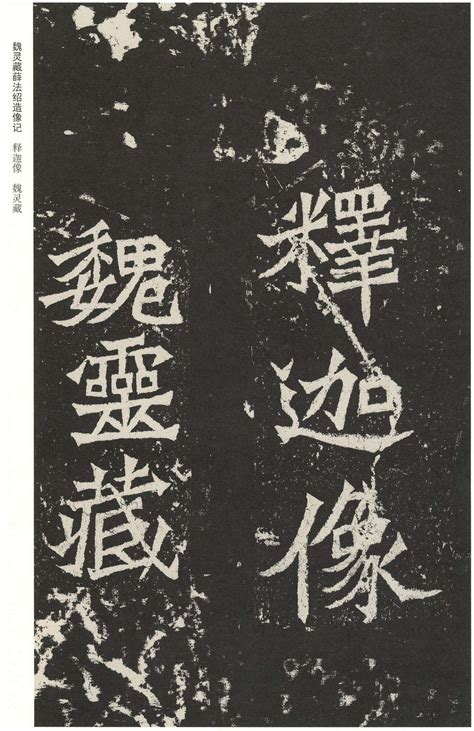 釋迦像
魏靈藏
魏灵藏薛法绍造像记 释迦像 魏灵藏